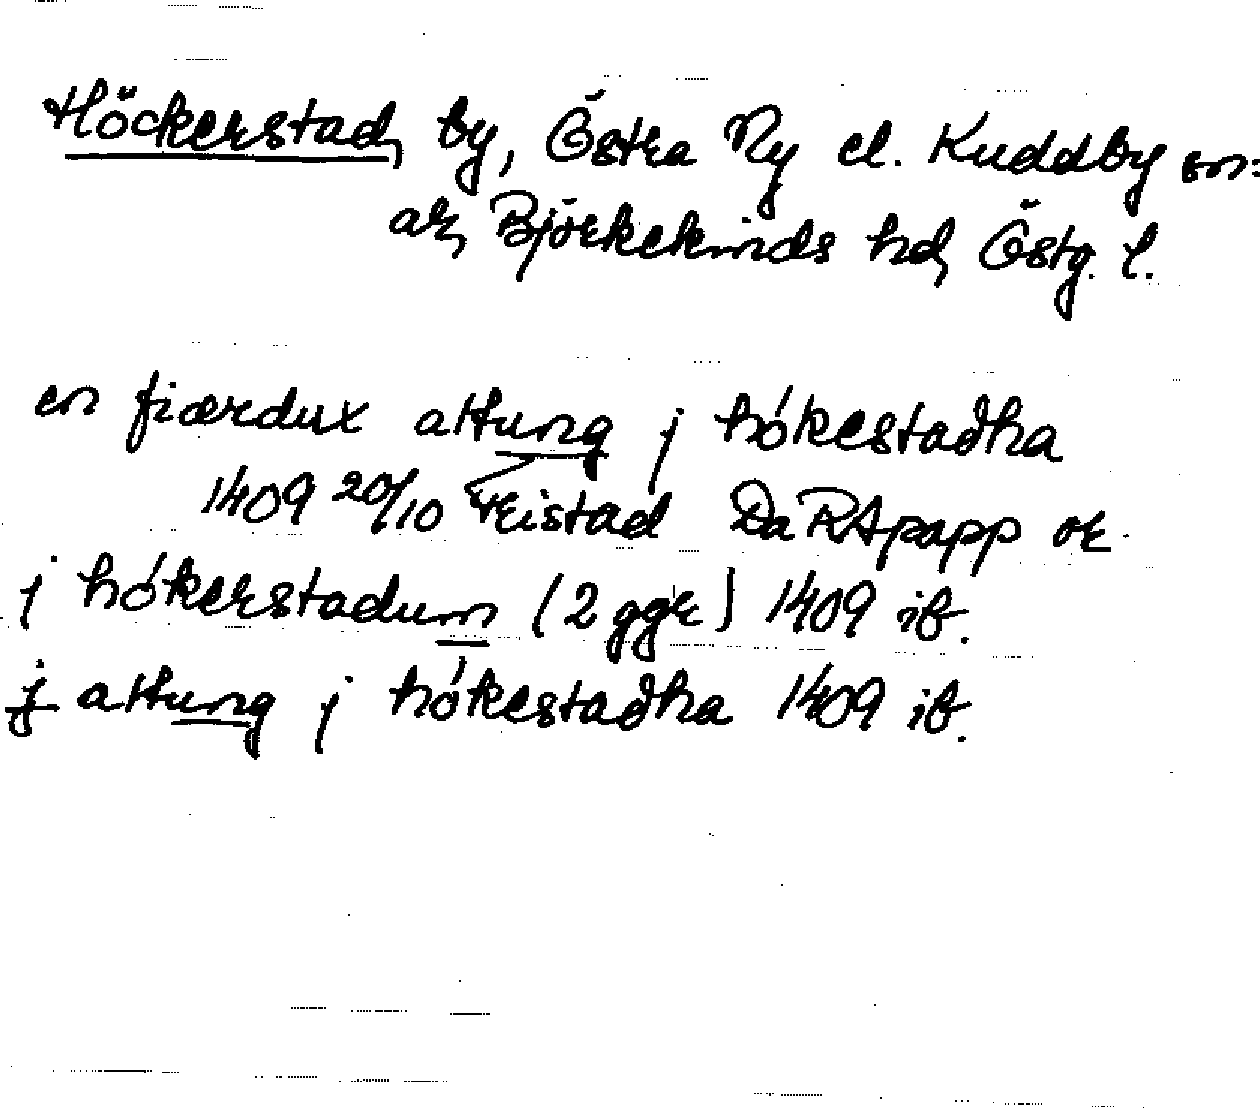 Höckerstad, by, Östra Ny el. Kuddby sn:
ar, Björkekinds hd, Östg. l.
en fiærdux attung j hókestadha
1409 20/10 Veistad Da RApapp or.
j hókerstadum (2 ggr) 1409 ib.
j attung j hókestadha 1409 ib.